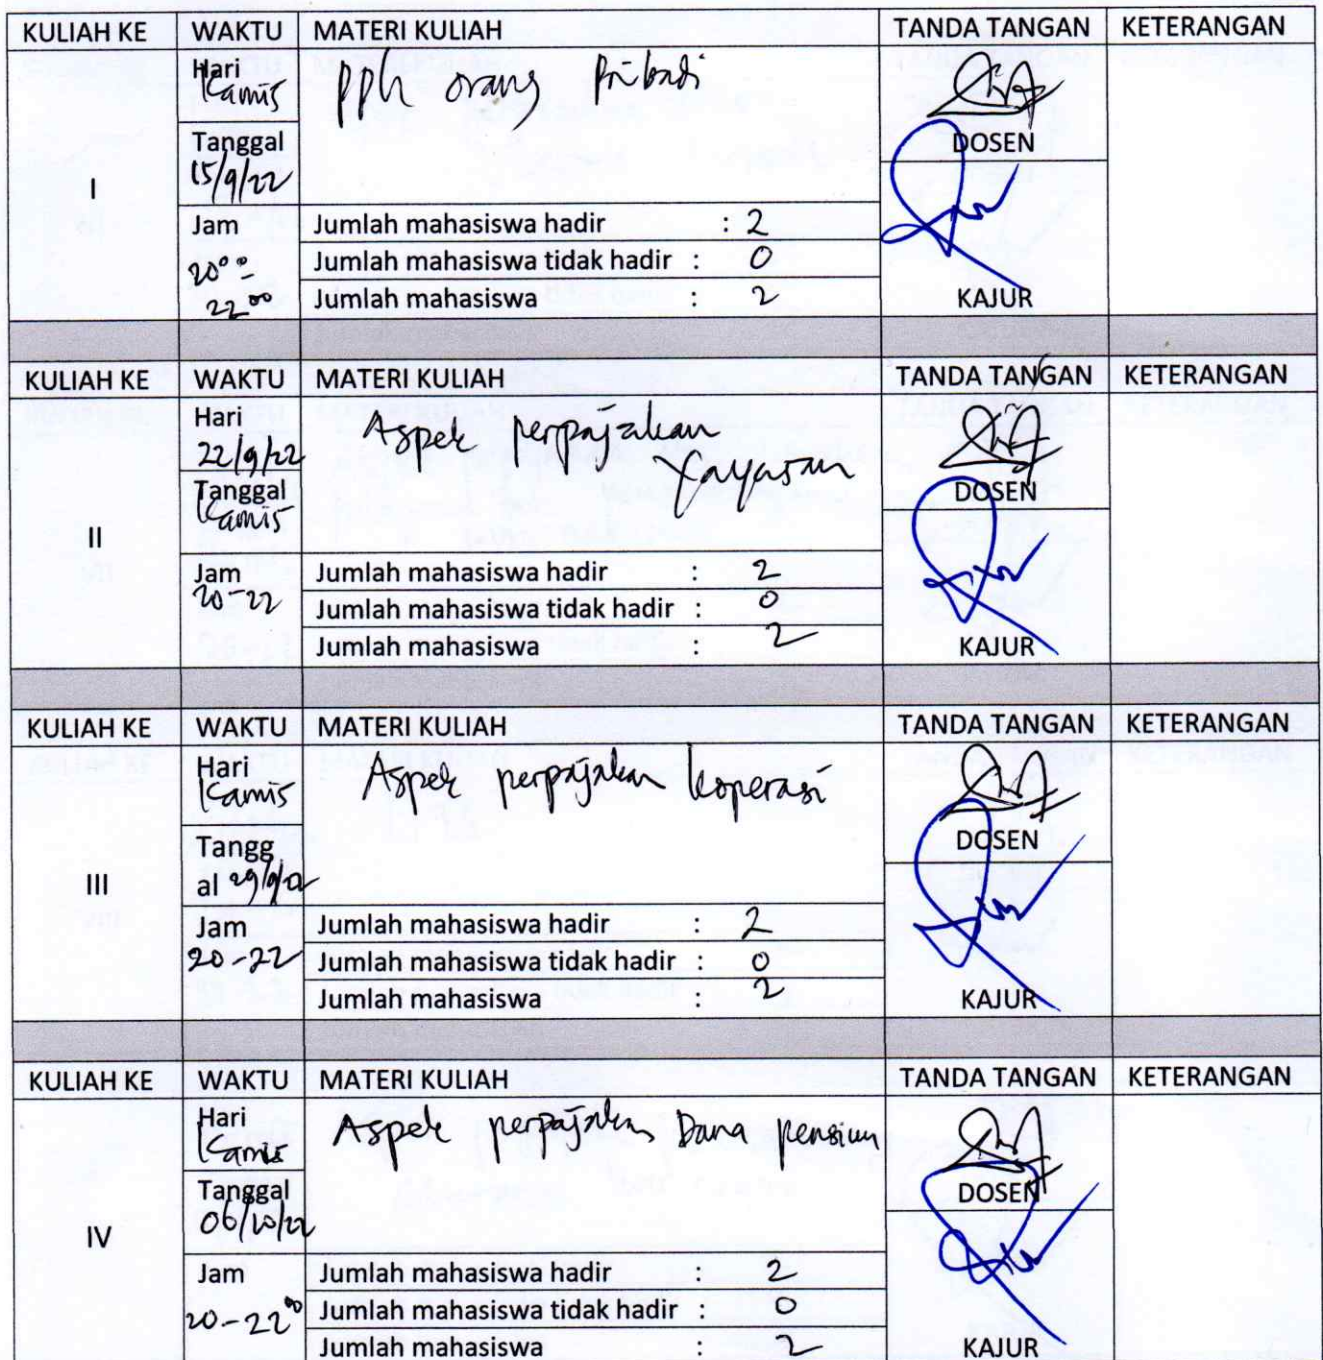 KULIAH KE WAKTU MATERI KULIAH TANDA TANGAN KETERANGAN
I
Hari
Kamis
PPh orang Pribadi
Tanggal
15/9/22
DOSEN
Jam
20⁰⁰ -
22⁰⁰
Jumlah mahasiswa hadir : 2
Jumlah mahasiswa tidak hadir : 0
Jumlah mahasiswa : 2
KAJUR
KULIAH KE WAKTU MATERI KULIAH TANDA TANGAN KETERANGAN
II
Hari
22/9/22
Aspek perpajakan
Yayasan
Tanggal
Kamis
DOSEN
Jam
20-22
Jumlah mahasiswa hadir : 2
Jumlah mahasiswa tidak hadir : 0
Jumlah mahasiswa : 2
KAJUR
KULIAH KE WAKTU MATERI KULIAH TANDA TANGAN KETERANGAN
III
Hari
Kamis
Aspek perpajakan koperasi
Tangg
al 29/9/22
DOSEN
Jam
20-22
Jumlah mahasiswa hadir : 2
Jumlah mahasiswa tidak hadir : 0
Jumlah mahasiswa : 2
KAJUR
KULIAH KE WAKTU MATERI KULIAH TANDA TANGAN KETERANGAN
IV
Hari
Kamis
Aspek perpajakan Dana pensiun
Tanggal
06/10/22
DOSEN
Jam
20-22⁰⁰
Jumlah mahasiswa hadir : 2
Jumlah mahasiswa tidak hadir : 0
Jumlah mahasiswa : 2
KAJUR